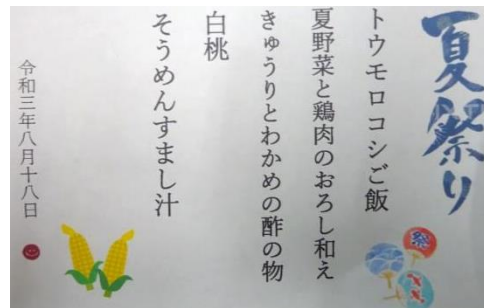 夏祭り
トウモロコシご飯
夏野菜と鶏肉のおろし和え
きゅうりとわかめの酢の物
白桃
そうめんすまし汁
令和三年八月十八日
祭